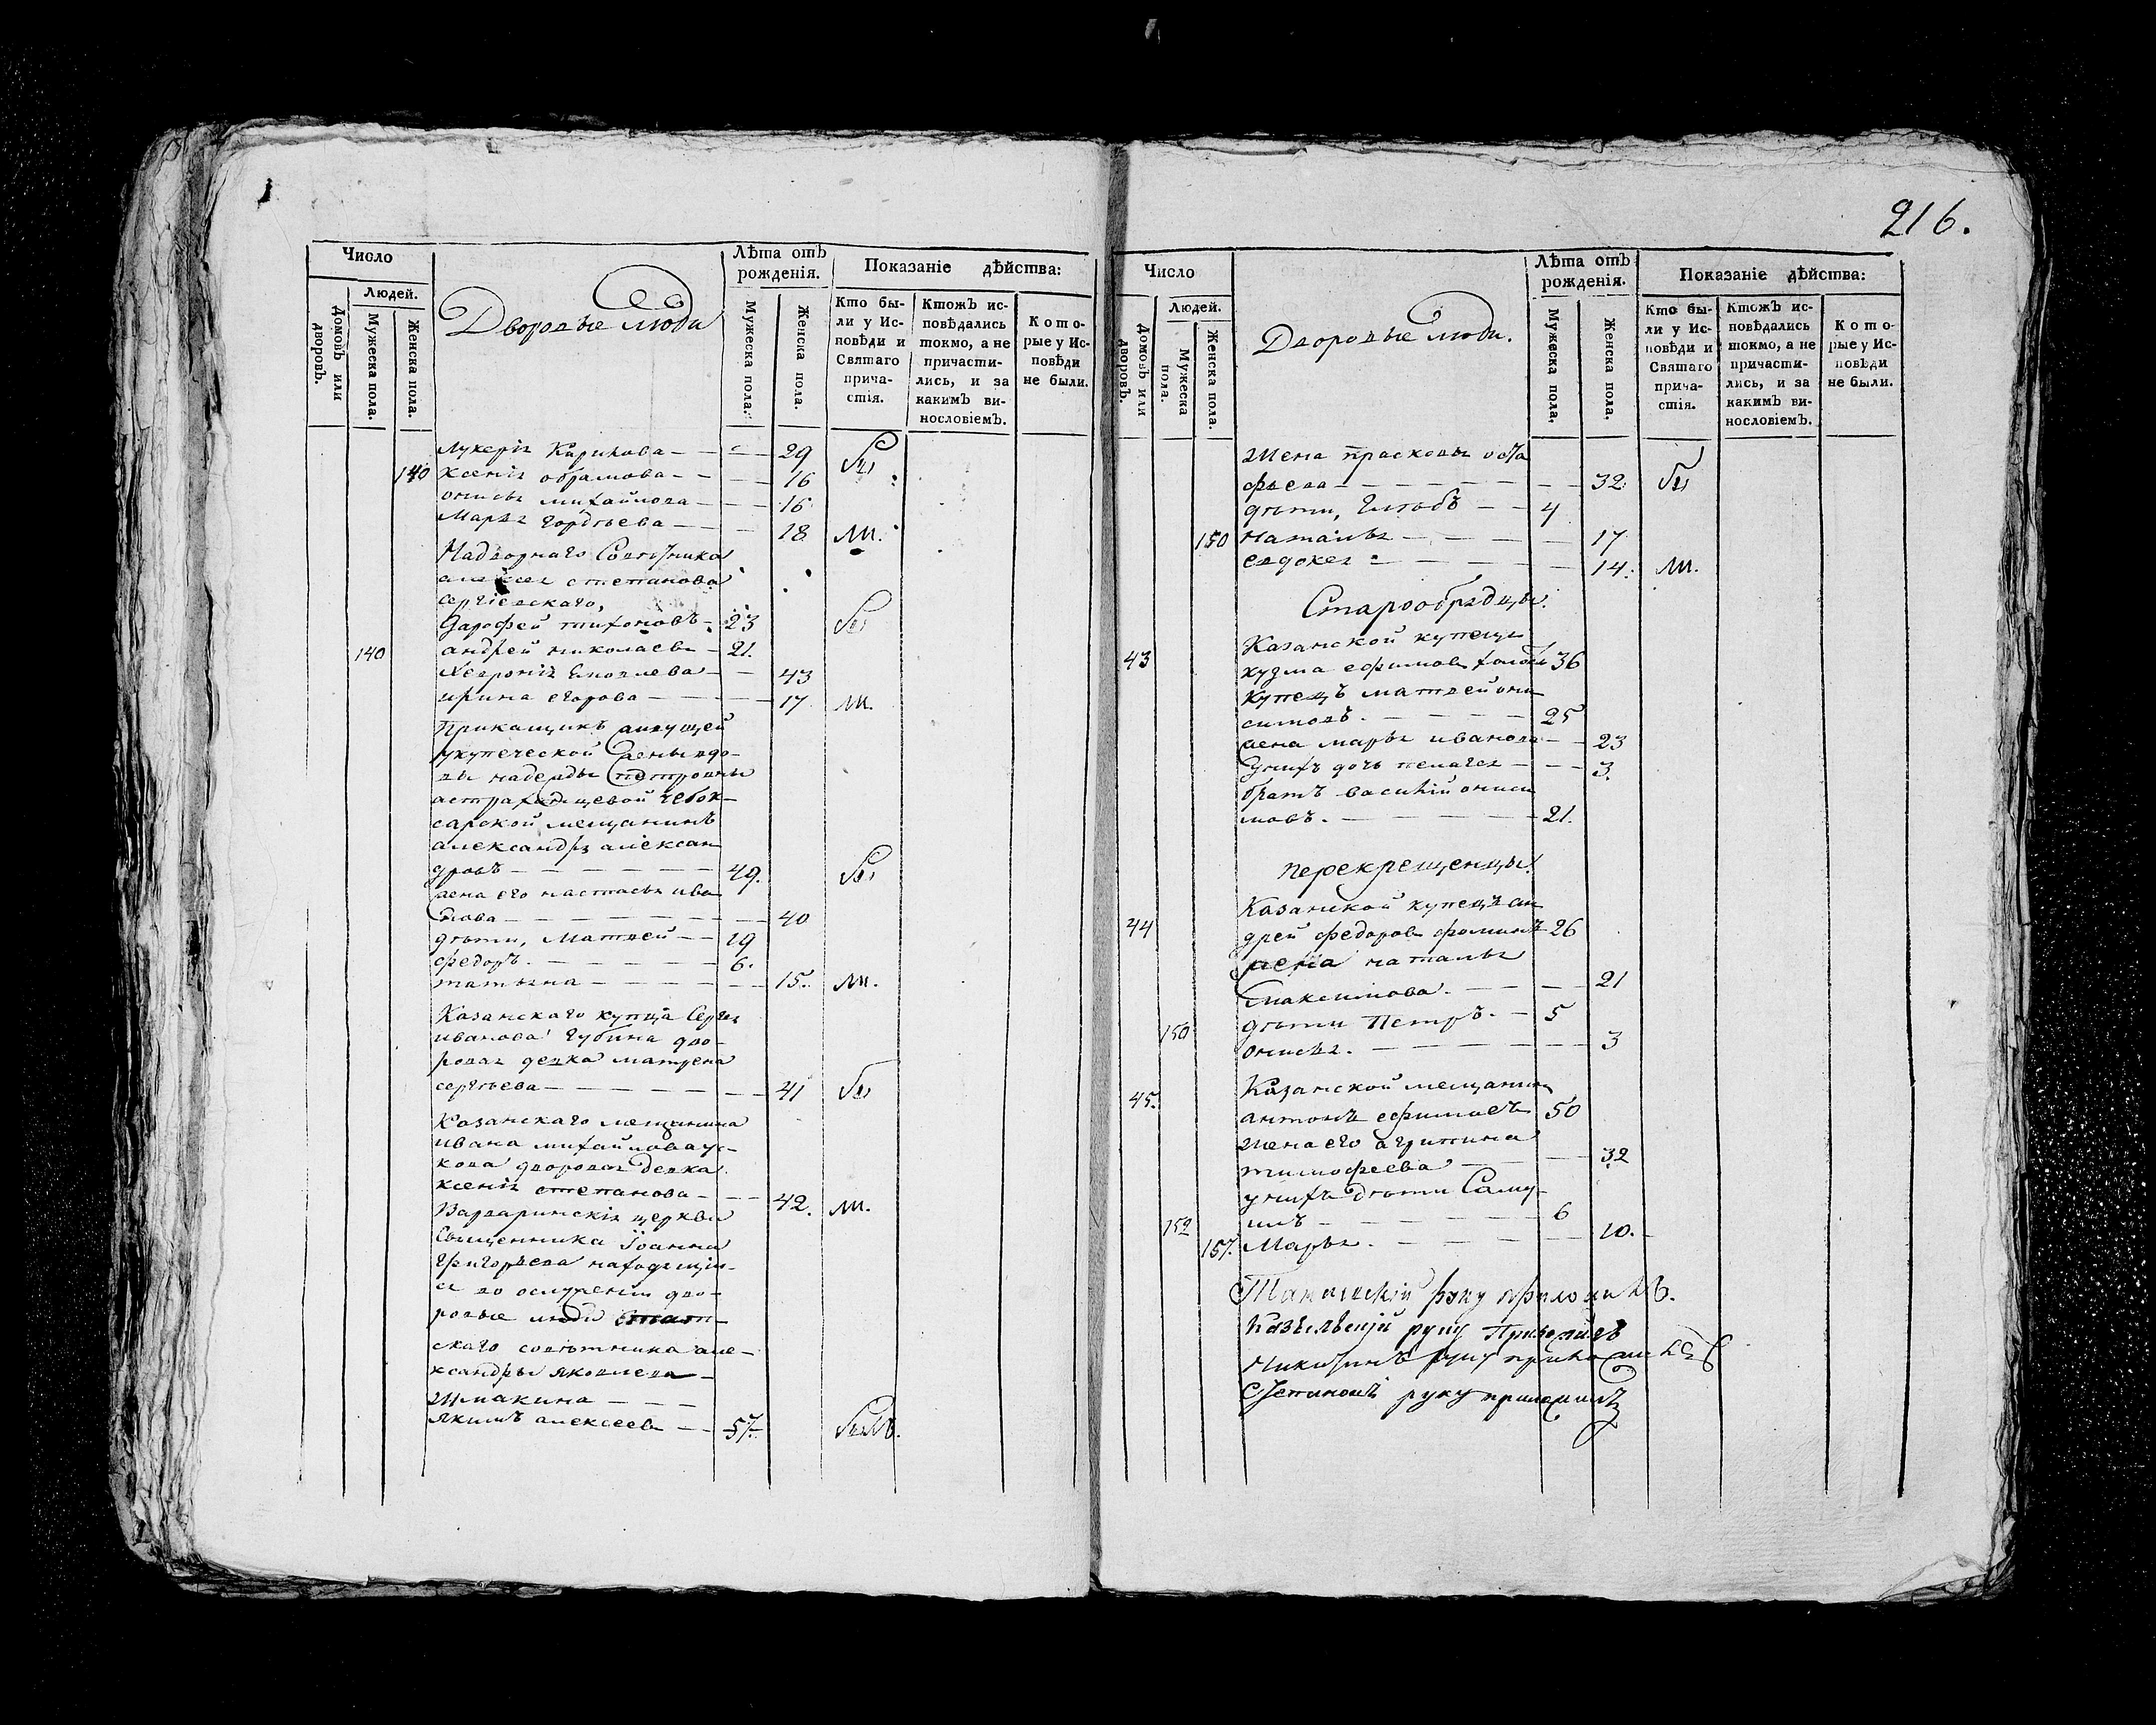 216.
Число
Людей.
Домовъ или дворовъ.
Мужеска пола.
Женска пола.
Дворовые люди
Лѣта отъ рожденія.
Мужеска пола.
Женска пола.
Показаніе дѣйства:
Кто были у Исповѣди и Святаго причастія.
Ктожъ исповѣдались токмо, а не причастились, и за какимъ винословіемъ.
Которые у Исповѣди не были.
лукерія Карпкова 29 бы
140 ксенія обрамова 16
онисья михайлова 16
Марья гордѣева 18 ли.
Надворнаго Совѣтника
алексея степанова
сергіевскаго,
дарофей тихоновъ 23 бы
140 андрей николаевъ 21.
Хевронія яковлева 43
ирина егорова 17 ли.
Прикащикъ живущей
укупеческой жены вдо-
вы надежды петровны
астраханцевой чебок-
сарской мещанинъ
александръ алексан
дровъ 49. бы
жена его настасья ива
нова 40
дѣти, Матвей 19
федоръ 6.
татьяна 15. ли.
Казанскаго купца Сергея
иванова губина дво-
ровая девка матрена
сергѣева 41 бы
Казанскаго мещанина
ивана михайлова
кова дворовая девка
ксенія степанова 42. ли.
Варваринскія церкви
Священника Іоанна
григорьева находящія-
ся во услуженіи дво-
ровые люди стат-
скаго совѣтника але-
ксандры яковлева
Шмакина
якимъ алексеевъ 57. былъ.
Число
Людей.
Домовъ или дворовъ.
Мужеска пола.
Женска пола.
Дворовые люди.
Лѣта отъ рожденія.
Мужеска пола.
Женска пола.
Показаніе дѣйства:
Кто были у Исповѣди и Святаго причастія.
Ктожъ исповѣдались токмо, а не причастились, и за какимъ винословіемъ.
Которые у Исповѣди не были.
Жена прасковья оста
фьева 32. бы
дѣти, глѣбъ 4
150 наталья 17
евдокея 14. ли.
Старообрядцы.
Казанской купецъ
43 кузма ефимовъ 36
купецъ матвей они
симовъ. 25
жена марья иванова 23
унихъ дочь пелагея 3.
братъ василій ониси
мовъ. 21.
перекрещенцы.
Казанской купецъ ан
44 дрей федоровъ фоминъ 26
жена наталья
максимова. 21
150 дѣти Петръ. 5
онисья. 3
45. Казанской мещанинъ
антонъ ефимовъ 50
жена его агрипина
тимофеева 32
унихъ дѣти Саму-
152 илъ 6
157. Марья. 10.
руку приложилъ.
руку Приложилъ
Никитинъ руку приложилъ
Устиновъ руку приложилъ